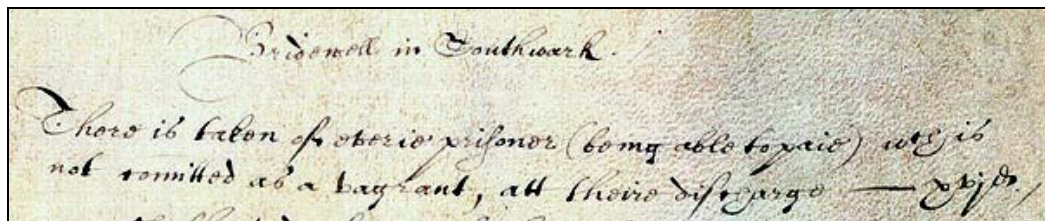 Bridewell in Southwark.
There is taken of everie prisoner (being able to paie) wch is
not comitted as a vagrant, att theire discharge — xvjd.